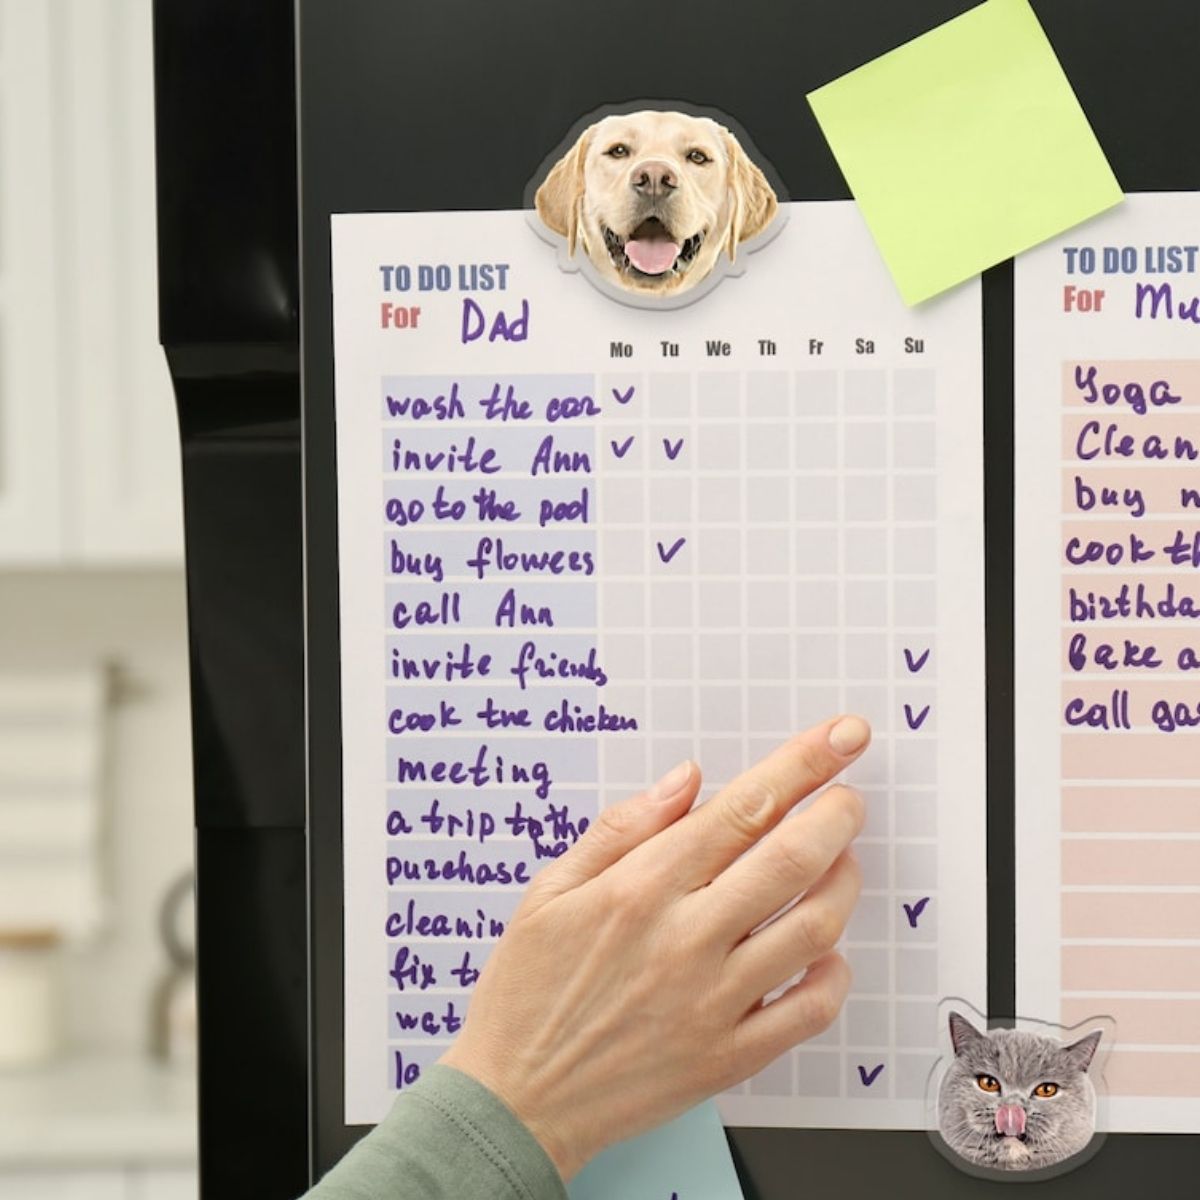 TO DO LIST
For Dad
Mo Tu We Th Fr Sa Su
wash the car
invite Ann
go to the pool
buy flowers
call Ann
invite friends
cook the chicken
meeting
a trip to the
purchase
cleanin
fix
TO DO LIST
For Mu
Yoga
Clean
buy n
cook th
birthda
bake a
call gas